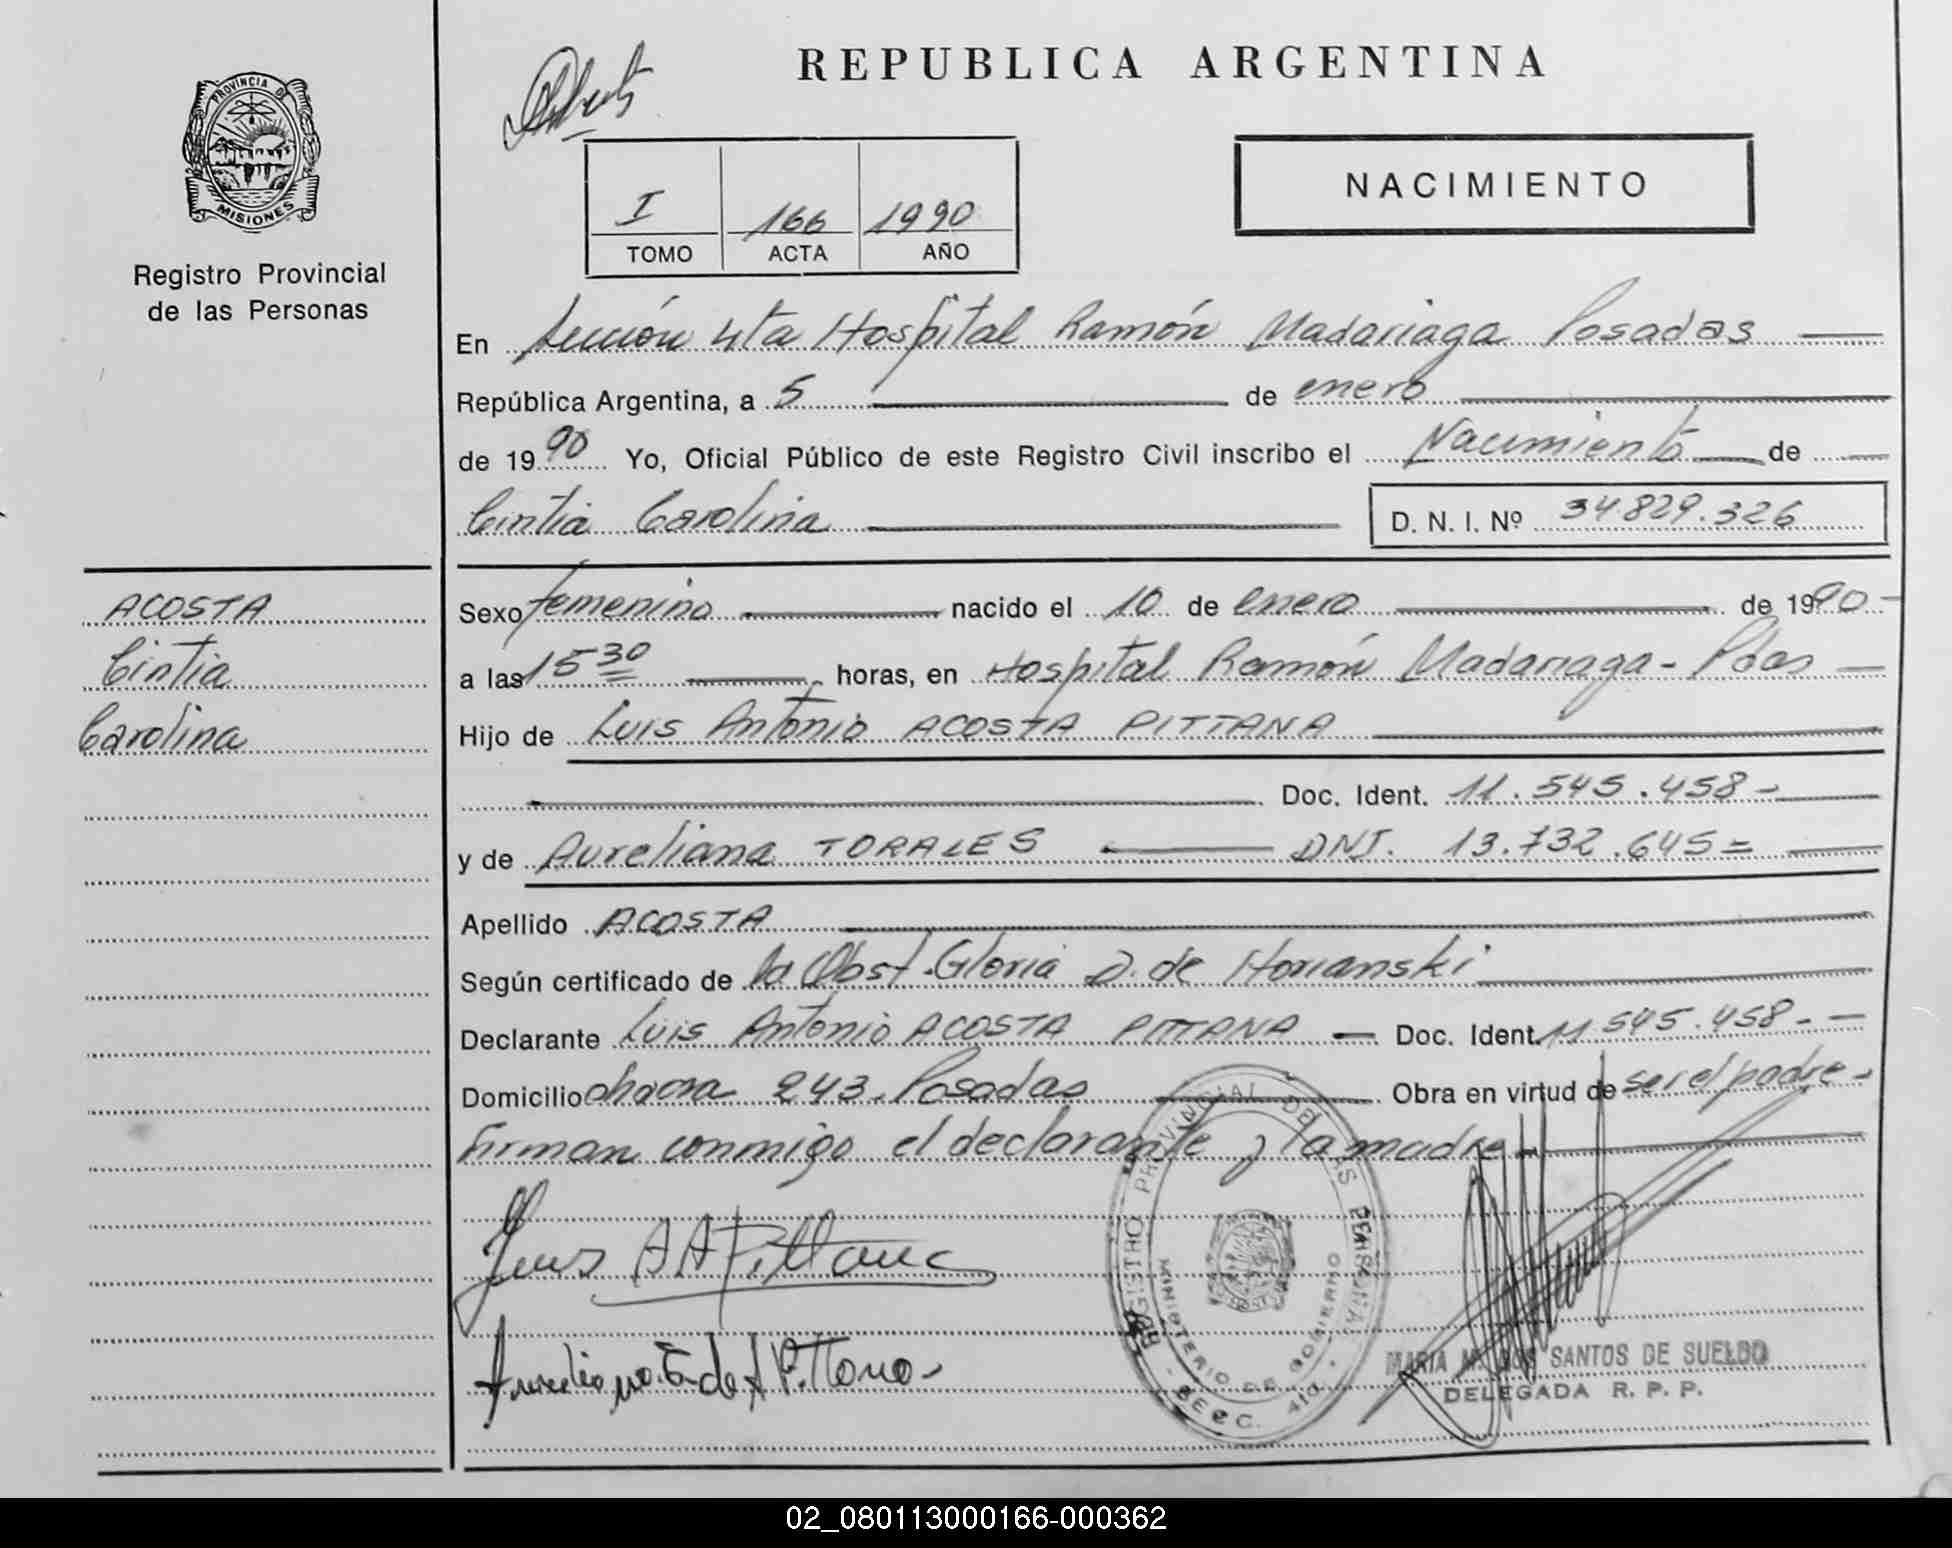 PROVINCIA DE
MISIONES
Registro Provincial
de las Personas
REPUBLICA ARGENTINA
NACIMIENTO
I 166 1990
TOMO ACTA AÑO
En Sección 4ta Hospital Ramón Madariaga Posadas
República Argentina, a 5 de enero
de 1990 Yo, Oficial Público de este Registro Civil inscribo el Nacimiento de
Cintia Carolina D. N. I. Nº 34.829.326
ACOSTA
Cintia
Carolina
Sexo femenino nacido el 10 de enero de 1990-
a las 15 30 horas, en Hospital Ramón Madariaga - Pdas
Hijo de Luis Antonio ACOSTA PITTANA
Doc. Ident. 11.545.458-
y de Aureliana TORALES DNI. 13.732.645=
Apellido ACOSTA
Según certificado de la Obst. Gloria D. de Horianski
Declarante Luis Antonio ACOSTA PITTANA - Doc. Ident. 11.545.458.-
Domicilio chacra 243. Posadas Obra en virtud de ser el padre -
Firman conmigo el declarante y la madre
REGISTRO PROVINCIAL DE LAS PERSONAS
MINISTERIO DE GOBIERNO
- SECC. 4ta. -
SANTOS DE SUELDO
DELEGADA R. P. P.
02_080113000166-000362